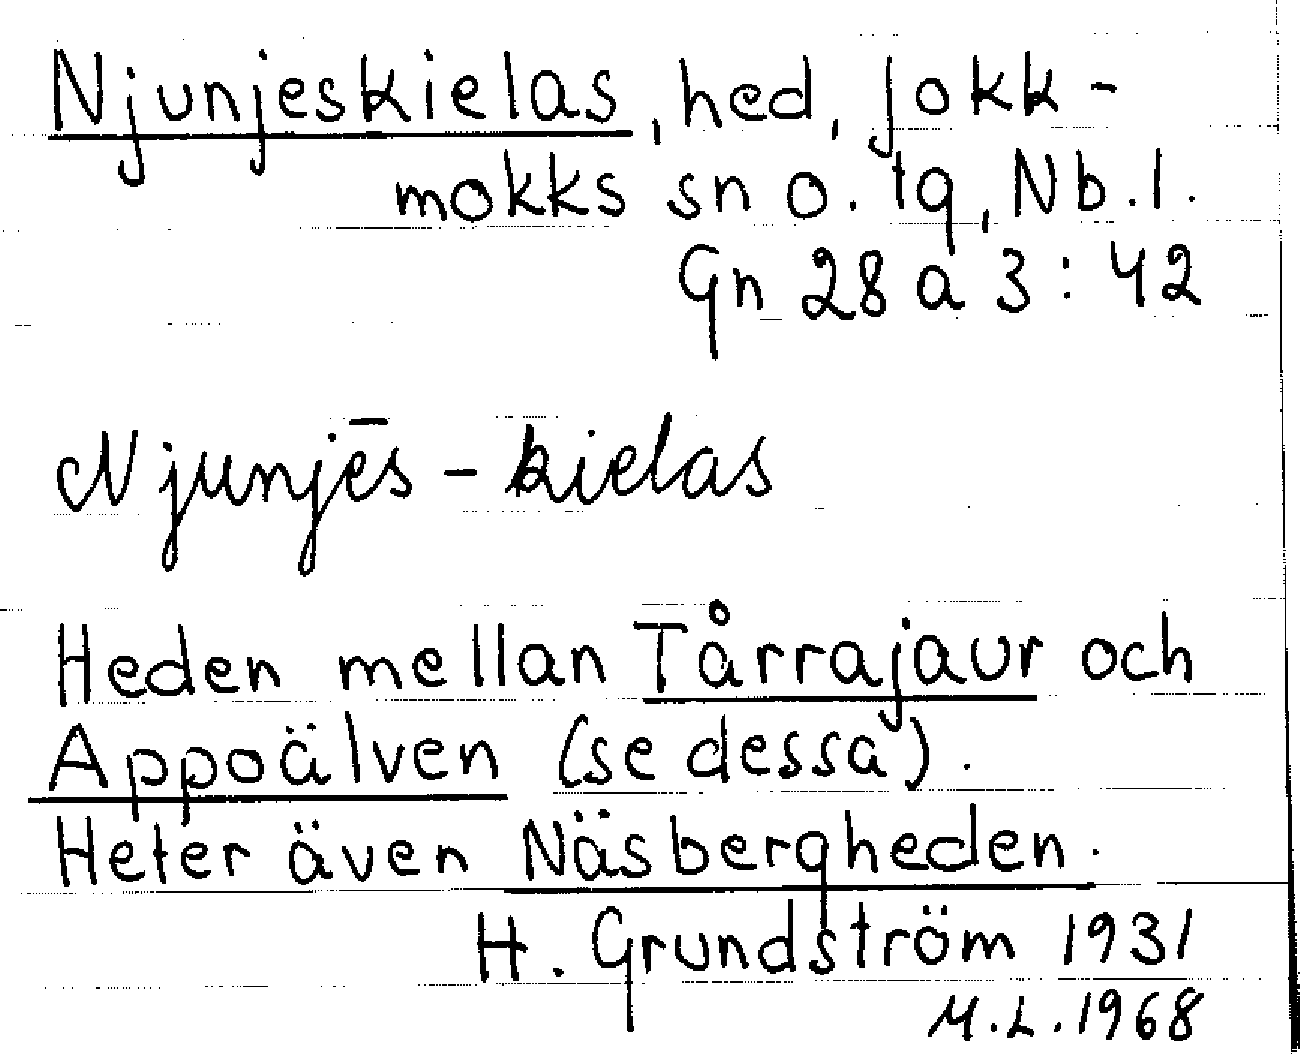 Njunjeskielas, hed, Jokk-
mokks sn o. tg, Nb.l.
Gn 28 a 3:42
Njunjēs-kielas
Heden mellan Tårrajaur och
Appoälven (se dessa).
Heter även Näsbergheden.
H. Grundström 1931
M.L. 1968